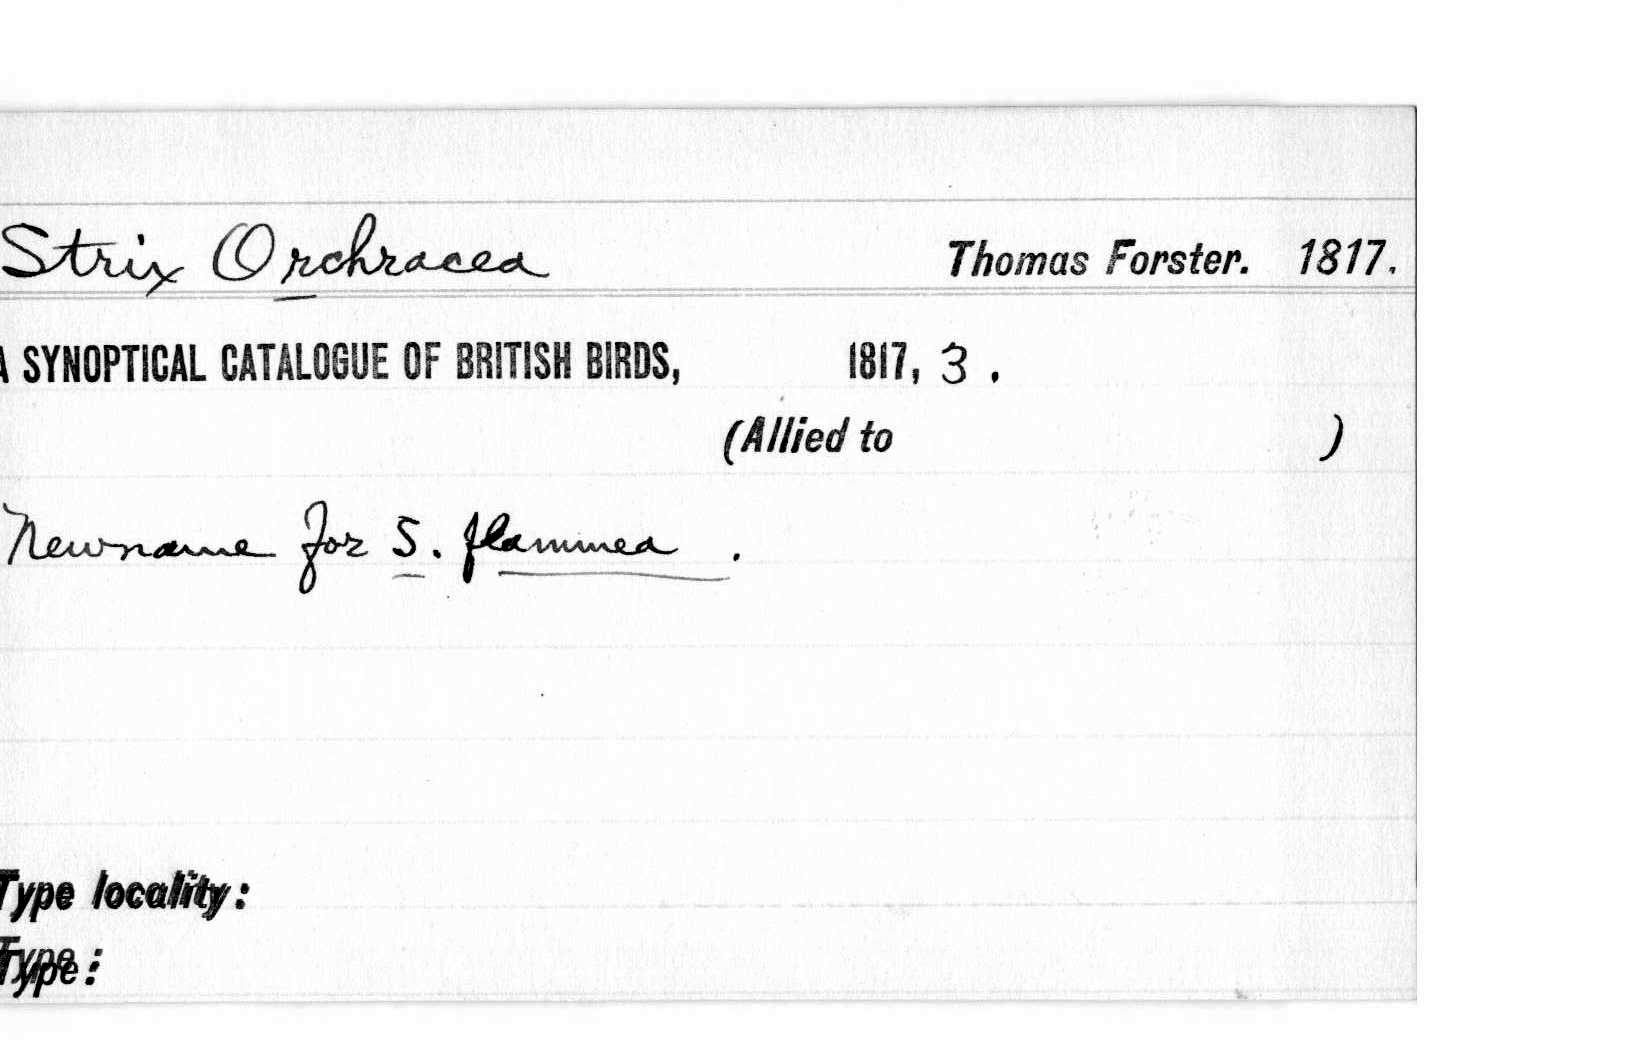 Strix Orchracea Thomas Forster. 1817.
A SYNOPTICAL CATALOGUE OF BRITISH BIRDS, 1817, 3.
(Allied to )
New name for S. flammea.
Type locality:
Type: